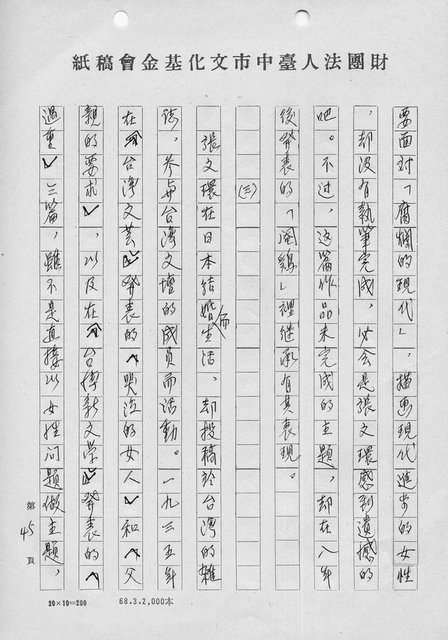 財團法人臺中市文化基金會稿紙
要面對「腐爛的現代」，描画現代進步的女性
，却没有執筆完成，必会是張文環感到遺憾的
吧。不过，这篇作品未完成的主題，却在八年
後発表的「閹鷄」裡继承有其表現。
(三)
張文環在日本結婚而生活，却投稿於台湾的雜
誌，参与台湾文壇的成員而活動。一九三五年
在《台湾文芸》発表的〈哭泣的女人〉和〈父
親的要求〉，以及在《台湾新文学》発表的〈
過重〉三篇，雖不是直接以女性问題做主題，
第45頁
20×10=200
68.3.2,000本